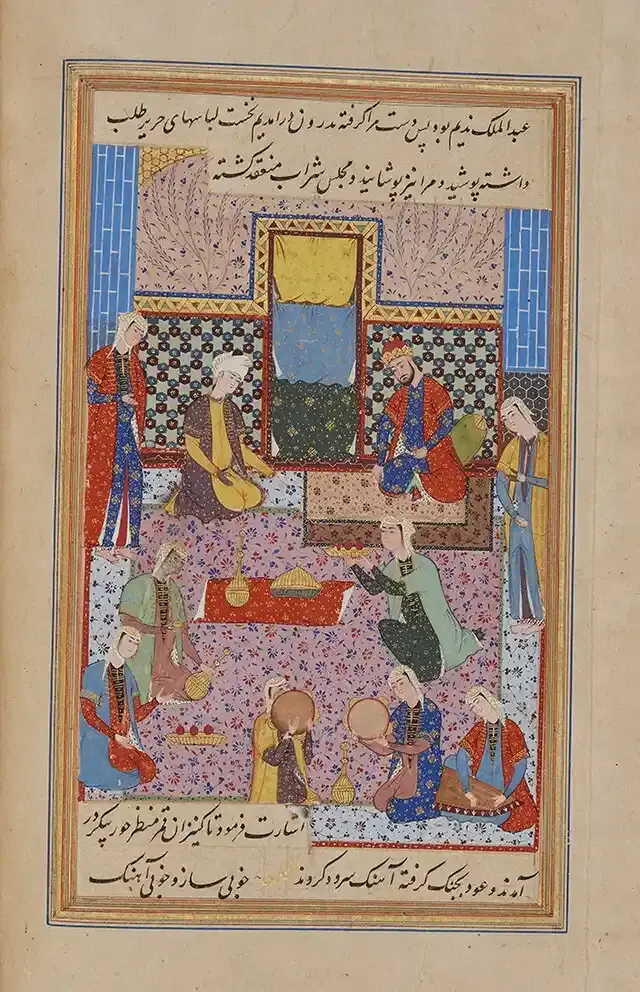 عبد الملک ندیم بود پس دست مرا گرفته بدرون در آمدیم نخست لباسهای حریر طلب
داشته پوشید و مرا نیز پوشانید و مجلس شراب منعقد گشته
اشارت فرمود تا کنیزان قمر منظر حور پیکر در
آمدند و عود بچنک گرفته آهنک سرود کردند خوبی ساز و خوبی آهنک